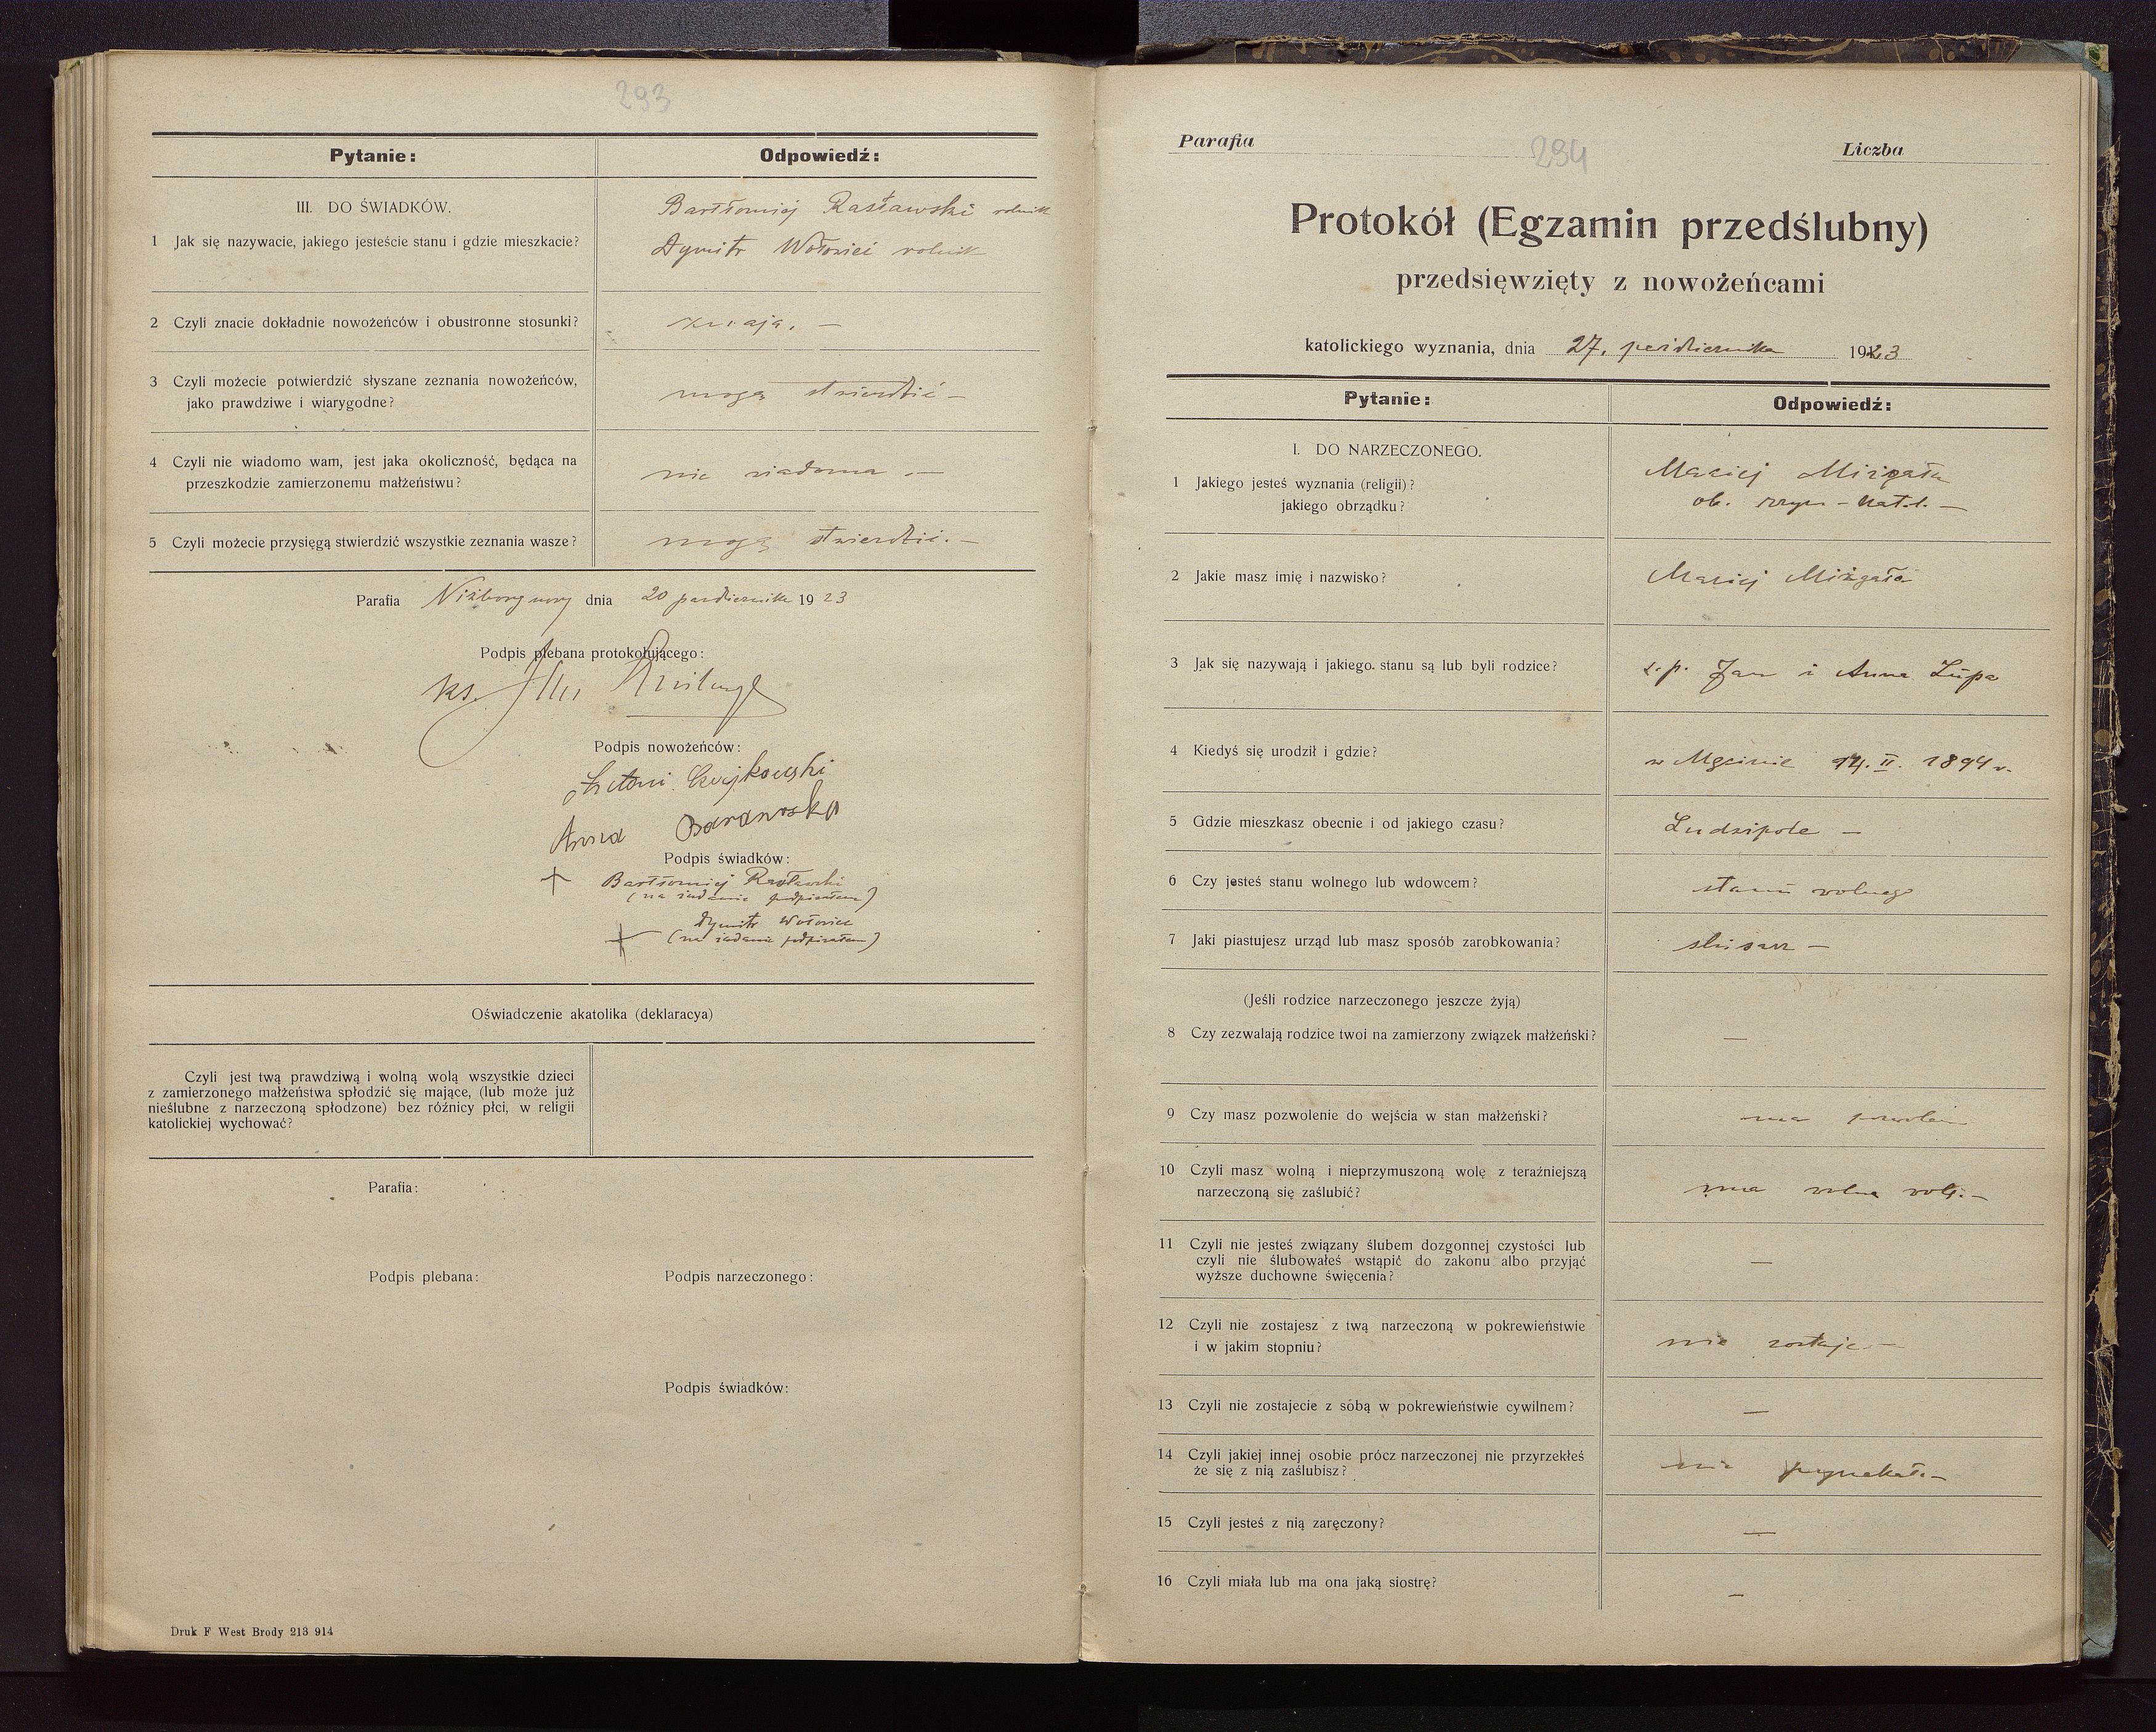 293
Pytanie:
Odpowiedź:
III. DO ŚWIADKÓW.
1 Jak się nazywacie, jakiego jesteście stanu i gdzie mieszkacie?
Bartłomiej Rasławski rolnik
Dymitr Wołowiec rolnik
2 Czyli znacie dokładnie nowożeńców i obustronne stosunki?
znają. —
3 Czyli możecie potwierdzić słyszane zeznania nowożeńców,
jako prawdziwe i wiarygodne?
mogą stwierdzić —
4 Czyli nie wiadomo wam, jest jaka okoliczność, będąca na
przeszkodzie zamierzonemu małżeństwu?
nie wiadoma . —
5 Czyli możecie przysięgą stwierdzić wszystkie zeznania wasze?
mogą stwierdzić. —
Parafia Niżborg nowy dnia 20 października 1923
Podpis plebana protokołującego:
ks.
Podpis nowożeńców:
Anna Baranowska
Podpis świadków:
Bartłomiej Rasławski
(na żądanie podpisałem)
Dymitr Wołowiec
(na żądanie podpisałem)
Oświadczenie akatolika (deklaracya)
Czyli jest twą prawdziwą i wolną wolą wszystkie dzieci
z zamierzonego małżeństwa spłodzić się mające, (lub może już
nieślubne z narzeczoną spłodzone) bez różnicy płci, w religii
katolickiej wychować?
Parafia:
Podpis plebana:
Podpis narzeczonego:
Podpis świadków:
Druk F West Brody 213 914
Parafia
294
Liczba
Protokół (Egzamin przedślubny)
przedsięwzięty z nowożeńcami
katolickiego wyznania, dnia 27. października 1923
Pytanie:
Odpowiedź:
I. DO NARZECZONEGO.
1 Jakiego jesteś wyznania (religii)?
jakiego obrządku?
Maciej Miżgała
ob. rzym-kat. —
2 Jakie masz imię i nazwisko?
Maciej Miżgała
3 Jak się nazywają i jakiego. stanu są lub byli rodzice?
ś.p. Jan i Anna Lupa
4 Kiedyś się urodził i gdzie?
w 14. II. 1894 r.
5 Gdzie mieszkasz obecnie i od jakiego czasu?
Ludzipole —
6 Czy jesteś stanu wolnego lub wdowcem?
stanu wolnego
7 Jaki piastujesz urząd lub masz sposób zarobkowania?
ślusarz —
(Jeśli rodzice narzeczonego jeszcze żyją)
8 Czy zezwalają rodzice twoi na zamierzony związek małżeński?
—
9 Czy masz pozwolenie do wejścia w stan małżeński?
ma
10 Czyli masz wolną i nieprzymuszoną wolę z teraźniejszą
narzeczoną się zaślubić?
ma wolną wolę. —
11 Czyli nie jesteś związany ślubem dozgonnej czystości lub
czyli nie ślubowałeś wstąpić do zakonu albo przyjąć
wyższe duchowne święcenia?
—
12 Czyli nie zostajesz z twą narzeczoną w pokrewieństwie
i w jakim stopniu?
nie zostaje —
13 Czyli nie zostajecie z sóbą w pokrewieństwie cywilnem?
—
14 Czyli jakiej innej osobie prócz narzeczonej nie przyrzekłeś
że się z nią zaślubisz?
nie przyrzekał —
15 Czyli jesteś z nią zaręczony?
—
16 Czyli miała lub ma ona jaką siostrę?
—